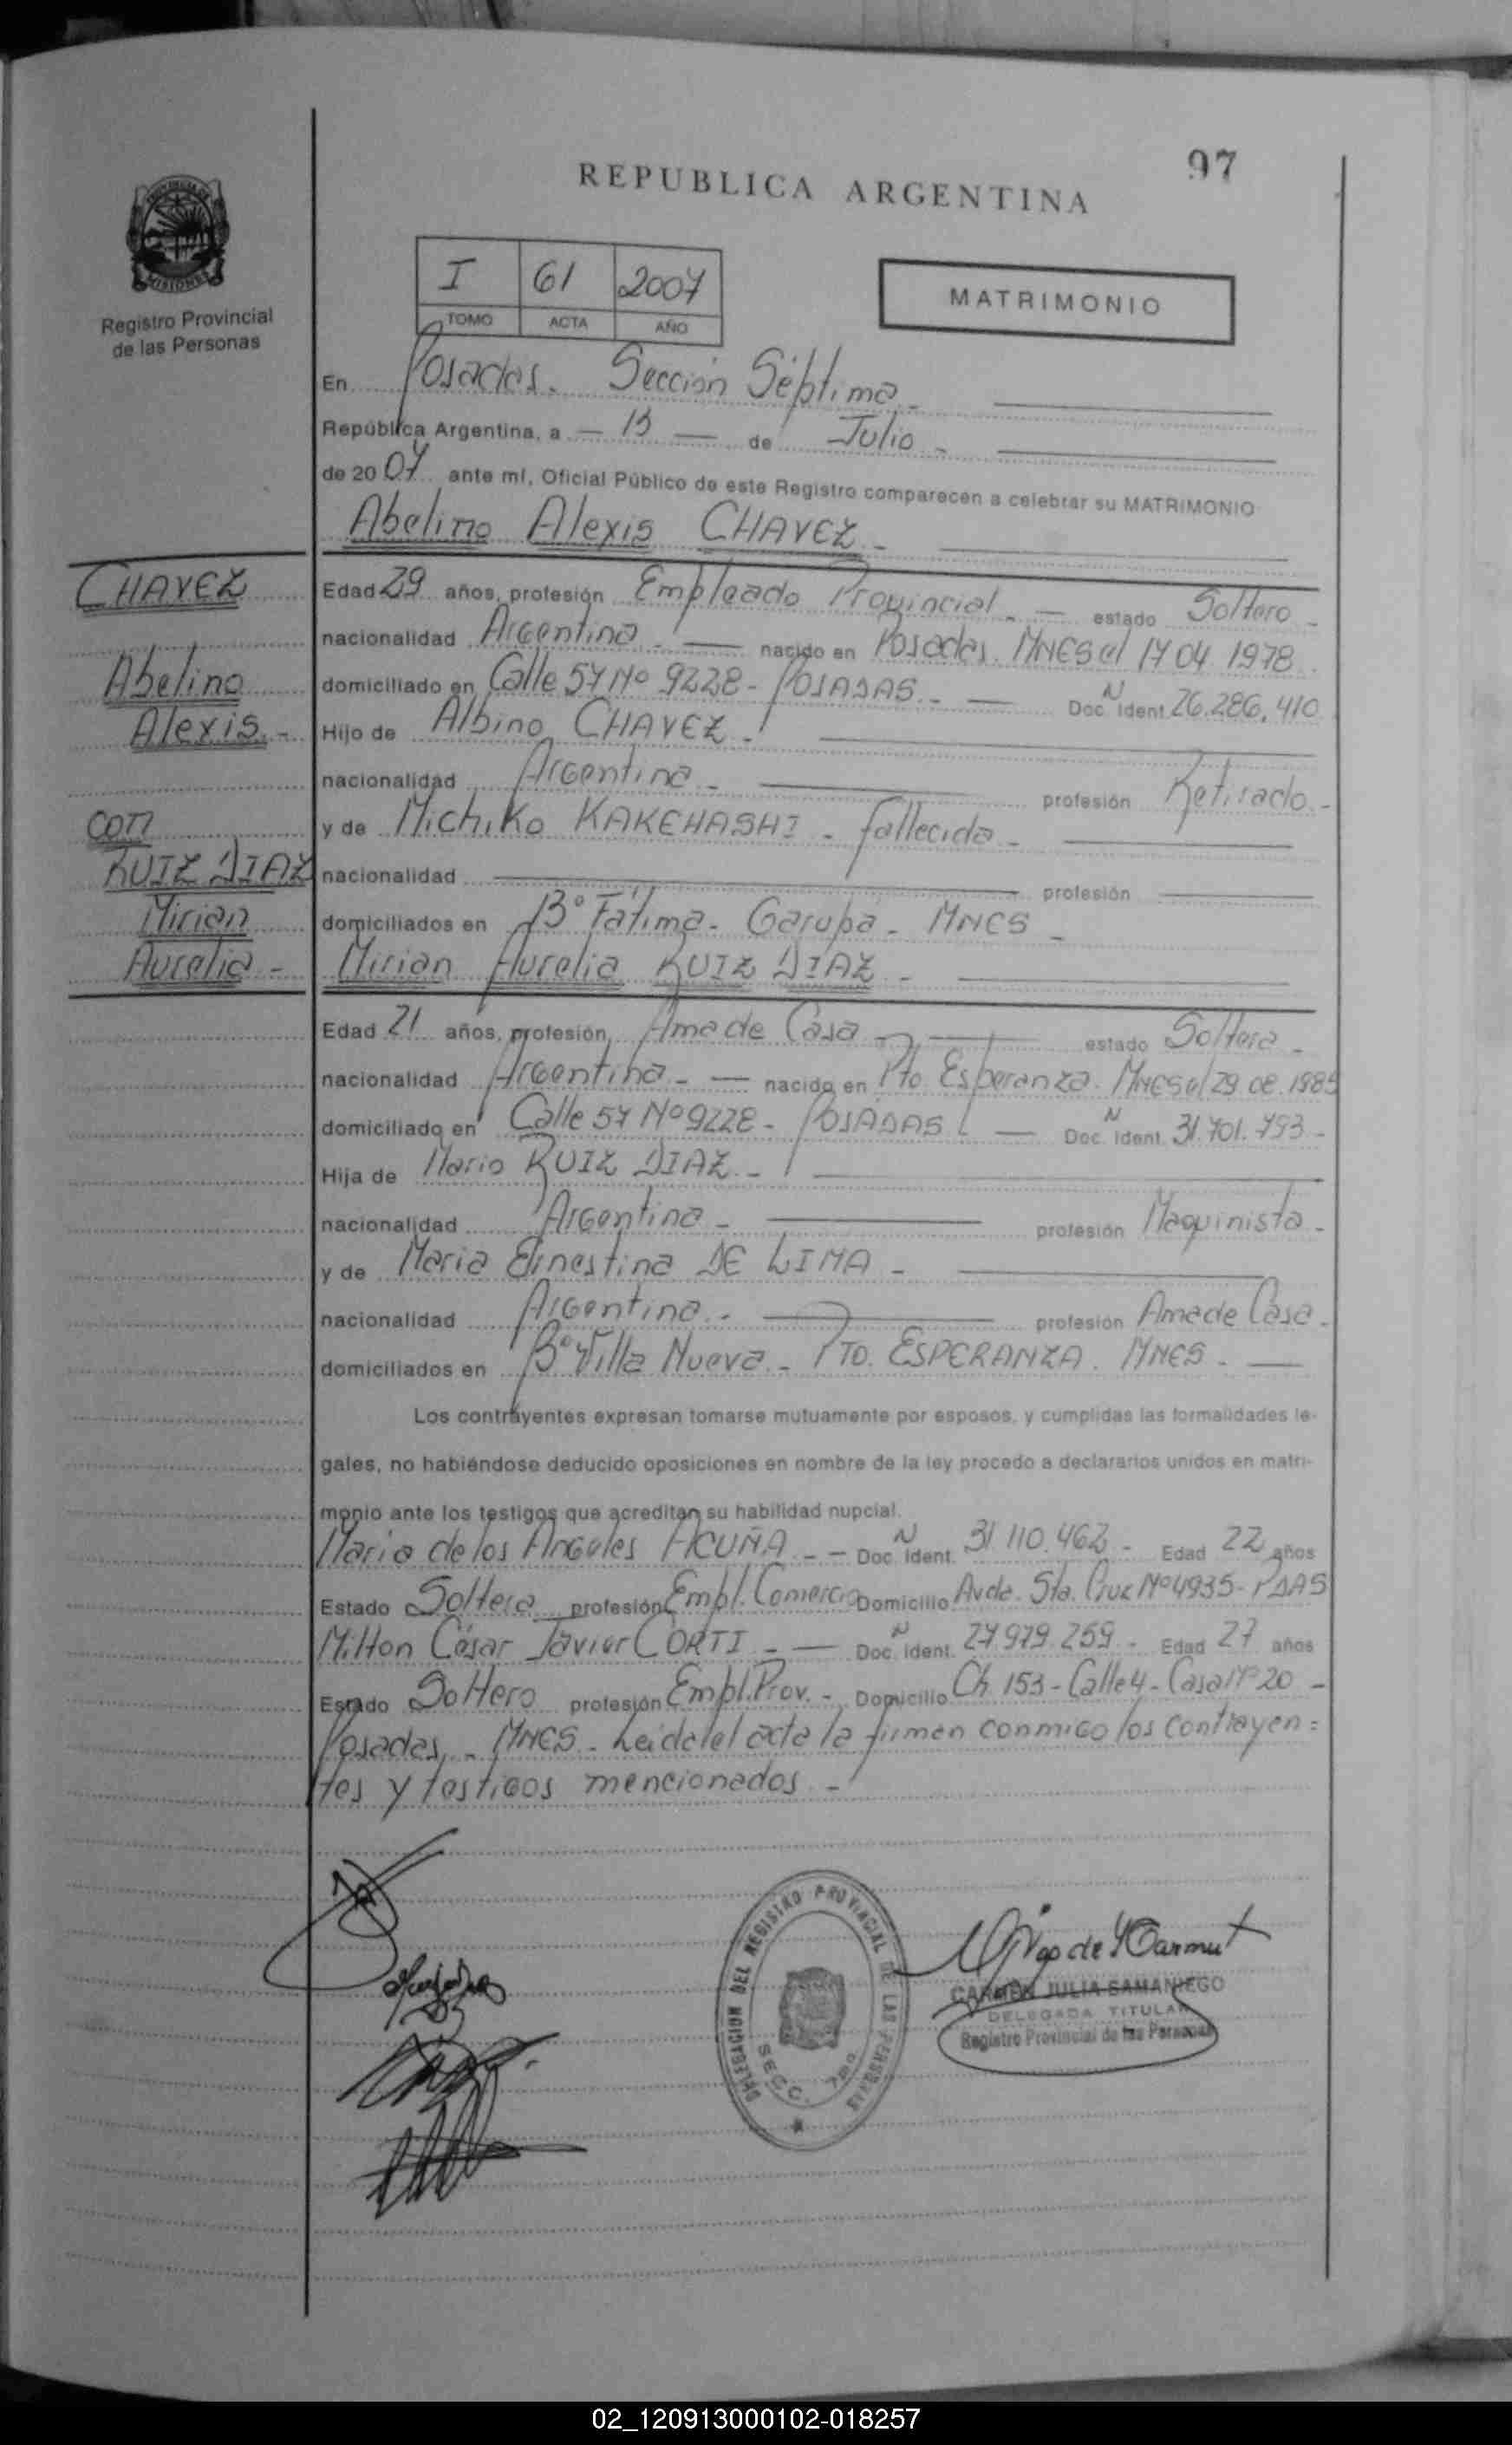 97
REPUBLICA ARGENTINA
PROVINCIA DE
MISIONES
Registro Provincial
de las Personas
I 61 2007
TOMO ACTA AÑO
MATRIMONIO
En Posadas. Sección Séptima -
República Argentina, a - 13 - de Julio -
de 2007 ante mí, Oficial Público de este Registro comparecen a celebrar su MATRIMONIO
Abelino Alexis CHAVEZ -
CHAVEZ
Abelino
Alexis. -
con
RUIZ DIAZ
Mirian
Aurelia -
Edad 29 años, profesión Empleado Provincial. - estado Soltero -
nacionalidad Argentina - nacido en Posadas. MNES el 17 04 1978.
domiciliado en Calle 57 Nº 9228 - POSADAS. - Doc. N Ident. 26.286.410
Hijo de Albino CHAVEZ -
nacionalidad Argentina - profesión Retirado -
y de Michiko KAKEHASHI - fallecida -
nacionalidad profesión
domiciliados en Bº Fátima - Garupa - MNES -
Mirian Aurelia RUIZ DIAZ -
Edad 21 años, profesión Ama de Casa - estado Soltera -
nacionalidad Argentina - nacido en Pto. Esperanza. MNES el 29 08 1985
domiciliado en Calle 57 Nº 9228 - POSADAS - Doc. N Ident. 31.701.793 -
Hija de Mario RUIZ DIAZ -
nacionalidad Argentina - profesión Maquinista -
y de Maria Ernestina DE LIMA -
nacionalidad Argentina - profesión Ama de Casa -
domiciliados en Bº Villa Nueva - PTO. ESPERANZA. MNES -
Los contrayentes expresan tomarse mutuamente por esposos, y cumplidas las formalidades le-
gales, no habiéndose deducido oposiciones en nombre de la ley procedo a declararlos unidos en matri-
monio ante los testigos que acreditan su habilidad nupcial.
Maria de los Angeles ACUÑA - - Doc. N Ident. 31.110.463 - Edad 22 años
Estado Soltera profesión Empl. Comercio Domicilio Avda. Sta. Cruz Nº 4935 - PDAS
Milton César Javier CORTI - Doc. N Ident. 27.979.259 - Edad 27 años
Estado Soltero profesión Empl. Prov. - Domicilio Ch. 153 - Calle 4 - Casa Nº 20 -
Posadas - MNES - Leida el acta la firman conmigo los contrayen=
tes y testigos mencionados -
DELEGACION DEL REGISTRO PROVINCIAL DE LAS PERSONAS
SECC. 7ma
CARMEN JULIA SAMANIEGO
DELEGADA TITULAR
Registro Provincial de las Personas
02_120913000102-018257